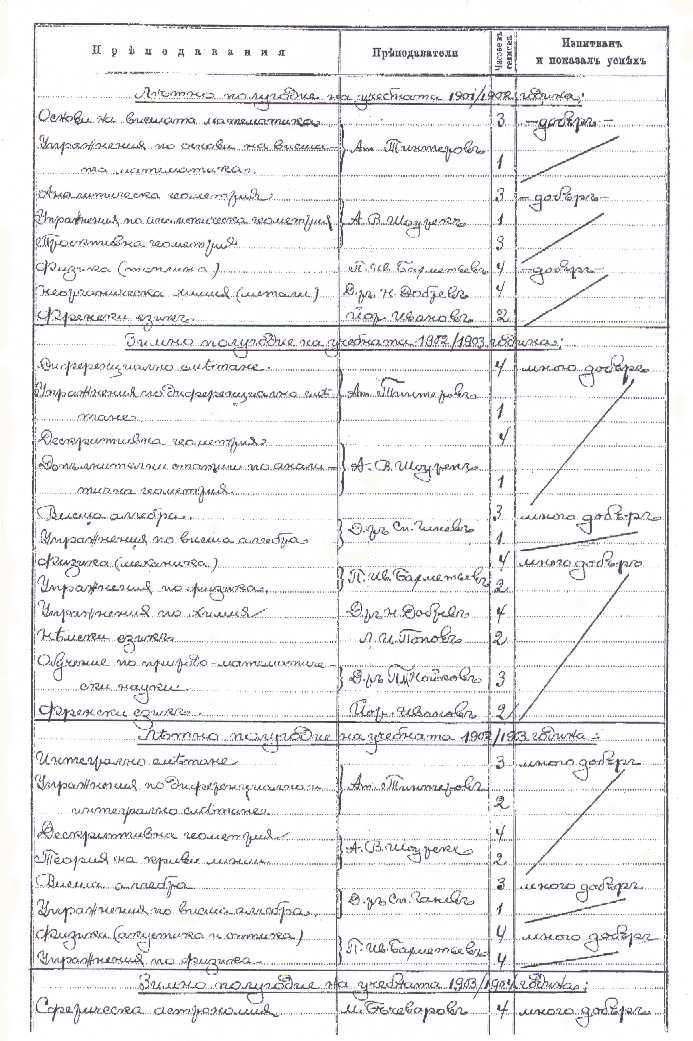 Прѣподавания Прѣподаватели Часове въ седмица Изпитванъ и показалъ успѣхъ
Лѣтно полугодие на учебната 1901/1902 година:
Основи на висшата математика 3 – добъръ –
Упражнения по основи на висша- } Ат. Тинтеровъ
та математика. 1
Аналитическа геометрия 3 – добъръ –
Упражнения по аналитическа геометрия } А. В. Шоурекъ 1
Проективна геометрия 3
Физика (топлина) П. Ив. Бахметьевъ 4 – добъръ –
Неорганическа химия (метали) Д-ръ Н. Добревъ 4
Френски езикъ. Йор. Ивановъ 2
Зимно полугодие на учебната 1902/1903 година:
Диференциално смѣтане. 4 много добъръ
Упражнения по диференциално смѣ- } Ат. Тинтеровъ
тане 1
Дескриптивна геометрия 4
Допълнителни статии по анали- } А. В. Шоурекъ
тична геометрия 1
Висша алгебра. 3 много добъръ
Упражнения по висша алгебра } Д-ръ Сп. Ганевъ 1
Физика (механика) 4 много добъръ
Упражнения по физика. } П. Ив. Бахметьевъ 2
Упражнения по химия Д-ръ Н. Добревъ 4
Нѣмски езикъ Поповъ 2
Обучение по природо-математиче-
ски науки. } Д-ръ Нойковъ 3
Френски езикъ. Йор. Ивановъ 2
Лѣтно полугодие на учебната 1902/1903 година:
Интегрално смѣтане 3 много добъръ
Упражнения по диференциално и } Ат. Тинтеровъ
интегрално смѣтане. 2
Дескриптивна геометрия 4
Теория на криви линии } А. В. Шоурекъ 2
Висша алгебра 3 много добъръ
Упражнения по висша алгебра. } Д-ръ Сп. Ганевъ 1
Физика (акустика и оптика) 4 много добъръ
Упражнения по физика } П. Ив. Бахметьевъ 4
Зимно полугодие на учебната 1903/1904 година:
Сферическа астрономия М. Бъчеваровъ 4 много добъръ